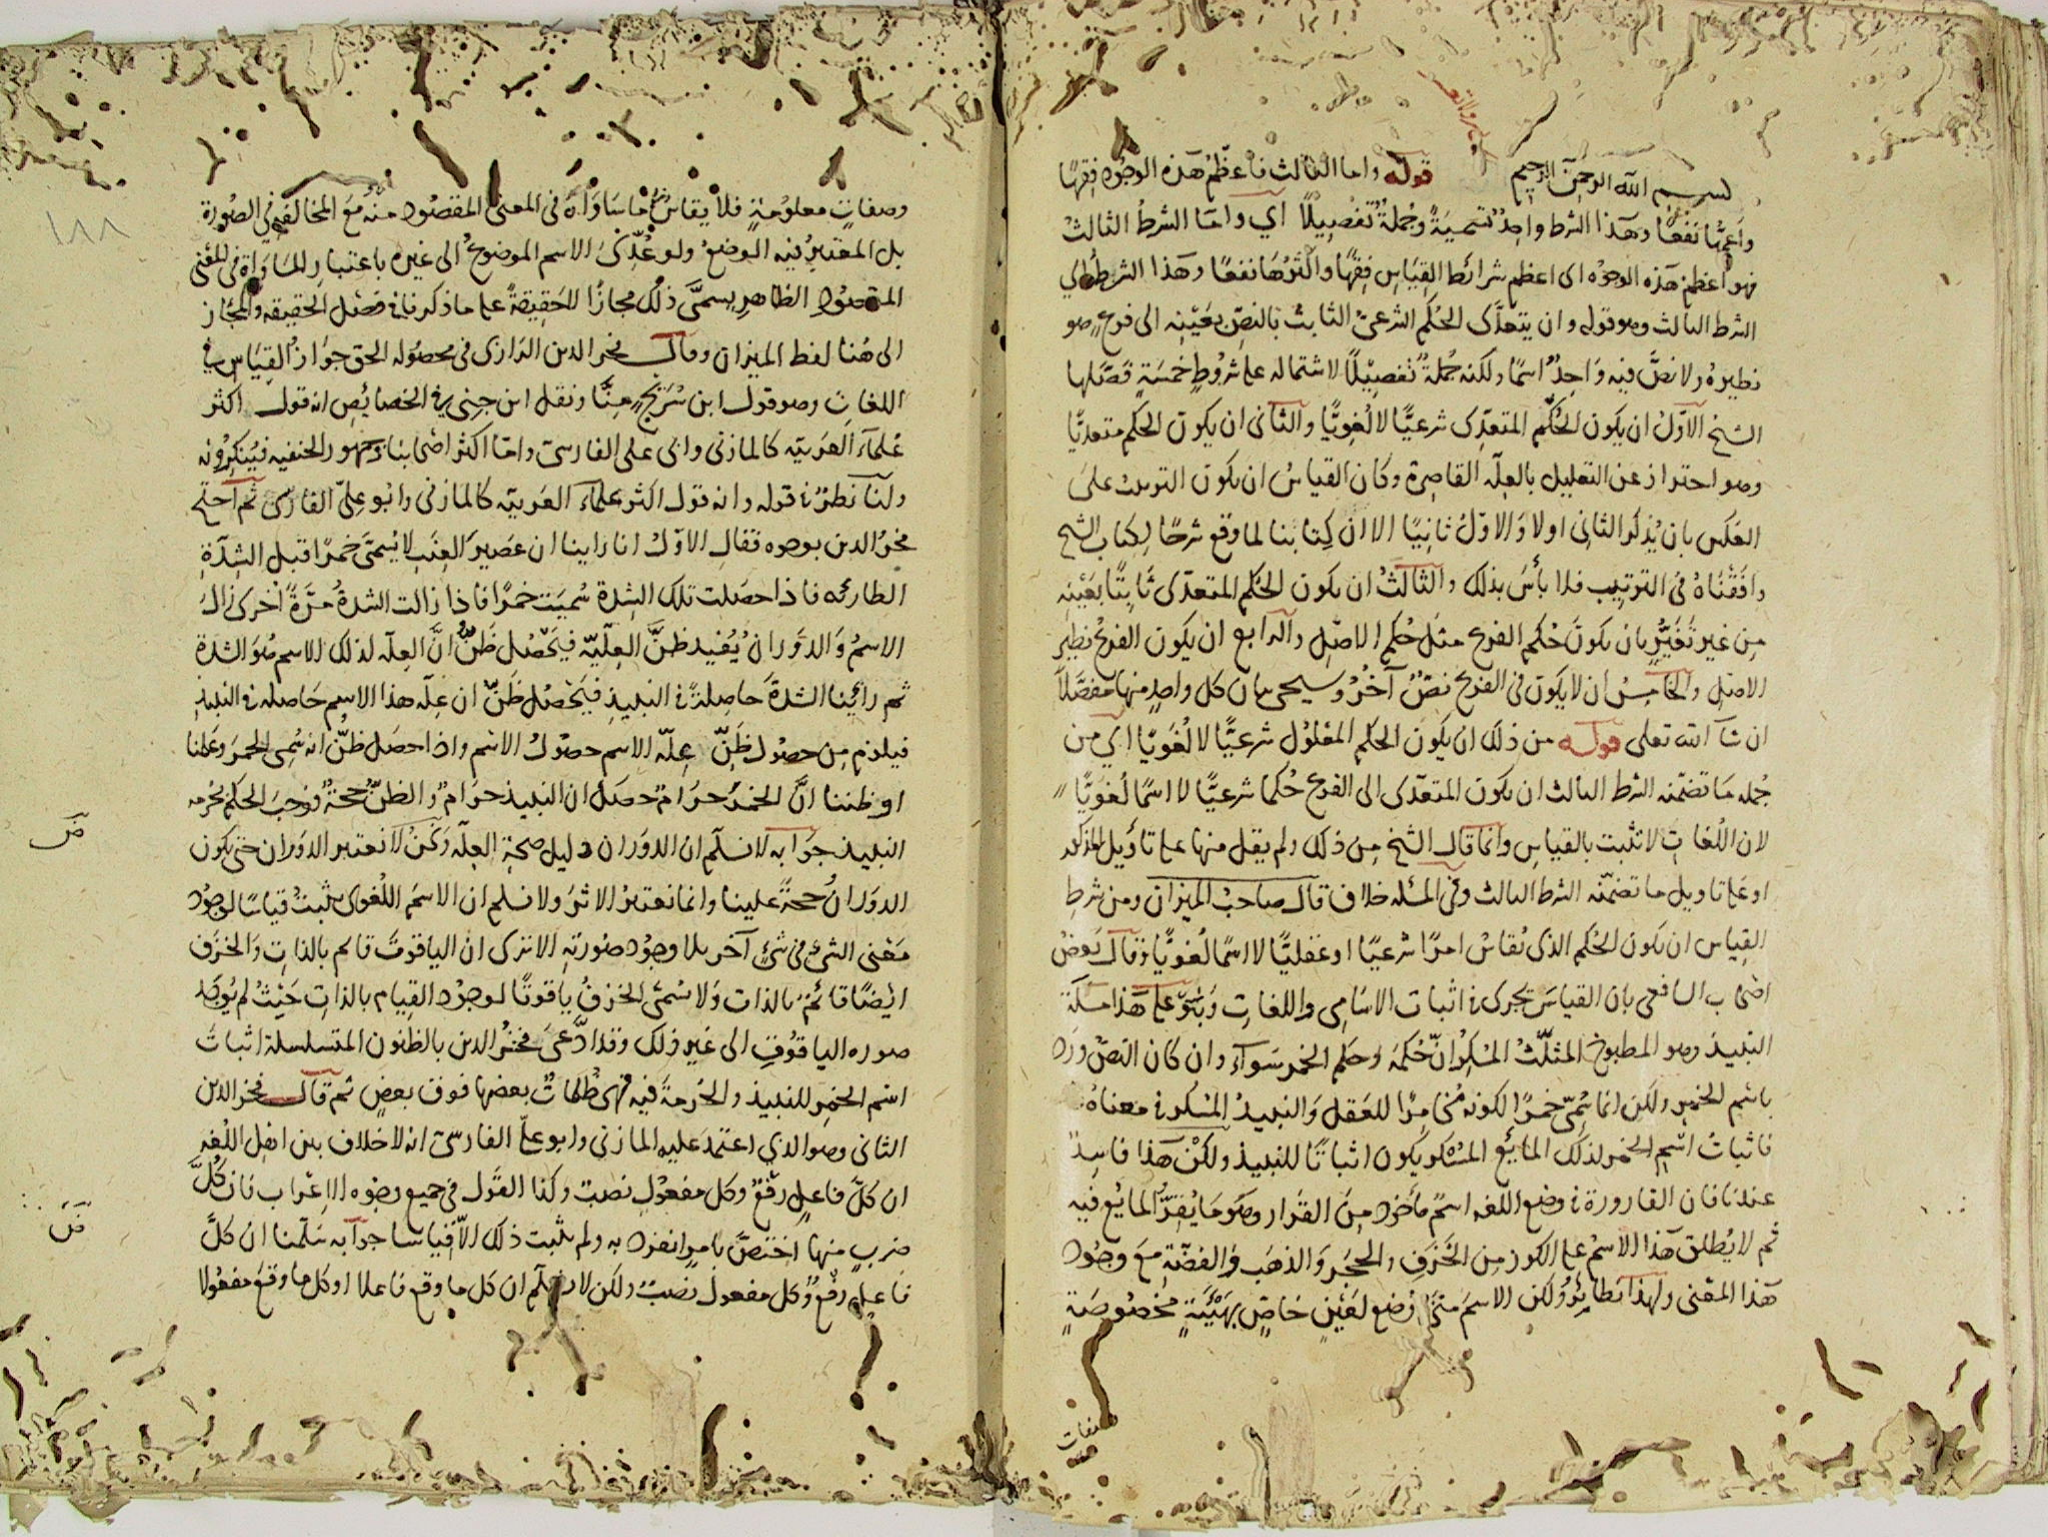 بسم الله الرحمن الرحيم قوله واما الثالث فاعظم هذه الوجوه فقها
واعمها نفعا وهذا الشرط واحد تسمية وجملة تفصيلا اي واما الشرط الثالث
فهو اعظم هذه الوجوه اى اعظم شرائط القياس فقها واكثرها نفعا وهذا الشرط اي
الشرط الثالث وهو قوله وان يتعدى الحكم الشرعى الثابت بالنص بعينه الى فرع هو
نظيره ولا نص فيه واحد اسما ولكنه جملة تفصيلا لاشتماله على شروط خمسة فصلها
الشيخ الاول ان يكون الحكم المتعدى شرعيا لا لغويا والثانى ان يكون الحكم متعديا
وهو احتراز عن التعليل بالعلة القاصرة وكان القياس ان يكون الترتيب على
العكس بان يذكر الثانى اولا والاول ثانيا الا ان كتابنا لما وقع شرحا لكتاب الشيخ
وافقناه فى الترتيب فلا بأس بذلك والثالث ان يكون الحكم المتعدى ثابتا بعينه
من غير تغير بان يكون حكم الفرع مثل حكم الاصل والرابع ان يكون الفرع نظير
الاصل والخامس ان لا يكون فى الفرع نص آخر وسيجى بيان كل واحد منها مفصلا
ان شآ الله تعلى قوله من ذلك ان يكون الحكم المعلول شرعيا لا لغويا اي من
جمله ما تضمنه الشرط الثالث ان يكون المتعدى الى الفرع حكما شرعيا لا اسما لغويا
لان اللغات لا تثبت بالقياس وانما قال الشيخ من ذلك ولم يقل منها على تاويل المذكور
او على تاويل ما تضمنه الشرط الثالث وفى المسئله خلاف قال صاحب الميزان ومن شرط
القياس ان يكون الحكم الذى يقاس امرا شرعيا او عقليا لا اسما لغويا وقال بعض
اصحاب الشافعى بان القياس يجرى فى اثبات الاسامى واللغات وبنى على هذا مسئلة
النبيذ وهو المطبوخ المثلث المسكر ان حكمه وحكم الخمر سواء وان كان النص ورد
باسم الخمر ولكن انما سمى خمرا لكونه مخامرا للعقل والنبيذ المسكر فى معناه
فاثبات اسم الخمر لذلك المايع المسكر يكون اثباتا للنبيذ ولكن هذا فاسد
عندنا فان القارورة فى وضع اللغه اسم ماخوذ من القرار وهو ما يقر المايع فيه
ثم لا يطلق هذا الاسم على الكوز من الخزف والحجر والذهب والفضة مع وجود
هذا المعنى ولهذا نظائر ولكن الاسم متى وضع لعين خاص بهيئة مخصوصة
وصفات
١٨٨
وصفات معلومة فلا يقاس ما ساواه فى المعنى المقصود منه مع المخالفة فى الصورة
بل المعتبر فيه الوضع ولو عدى الاسم الموضوع الى غيره باعتبار المساواة فى المعنى
المقصود الظاهر يسمى ذلك مجازا للحقيقة على ما ذكرنا فى فصل الحقيقه والمجاز
الى هنا لفظ الميزان وقال فخر الدين الرازى فى محصوله الحق جواز القياس فى
اللغات وهو قول ابن سريج منا ونقل ابن جنى فى الخصائص انه قول اكثر
علماء العربية كالمازنى وابى على الفارسى واما اكثر اصحابنا وجمهور الحنفيه فينكرونه
ولنا نظر فى قوله وانه قول اكثر علماء العربية كالمازنى وابو على الفارسى ثم احتج
فخر الدين بوجوه فقال الاول انا راينا ان عصير العنب لا يسمى خمرا قبل الشدة
الطارئه فاذا حصلت تلك الشدة سميت خمرا فاذا زالت الشدة مرة اخرى زال
الاسم والدوران يفيد ظن العلية فيحصل ظن ان العله لذلك الاسم هو الشدة
ثم رائينا الشدة حاصلة فى النبيذ فيحصل ظن ان عله هذا الاسم حاصله فى النبيذ
فيلزم من حصول ظن علة الاسم حصول الاسم واذا حصل ظن انه سمى الخمر وعلمنا
او ظننا ان الخمر حرام حصل ان النبيذ حرام والظن حجة فوجب الحكم بحرمه
النبيذ جوابه لا نسلم ان الدوران دليل صحة العله ونحن لا نعتبر الدوران حتى يكون
الدوران حجة علينا وانما نعتبر الاثر ولا نسلم ان الاسم اللغوى يثبت قياسا لوجود
معنى الشئ فى شئ آخر بلا وجود صورته الا ترى ان الياقوت قائم بالذات والخزف
ايضا قائم بالذات ولا سمى الخزف ياقوتا لوجود القيام بالذات حيث لم يوجد
صوره الياقوت الى غير ذلك وقد ادعى فخر الدين بالظنون المتسلسلة اثبات
اسم الخمر للنبيذ والحرمة فيه فهى ظلمات بعضها فوق بعض ثم قال فخر الدين
الثانى وهو الذي اعتمد عليه المازنى وابو على الفارسى انه لا خلاف بين اهل اللغه
ان كل فاعل رفع وكل مفعول نصب وكذا القول فى جميع وجوه الاعراب فان كل
ضرب منها اختص بامر انفرد به ولم يثبت ذلك الا قياسا جوابه سلمنا ان كل
فاعل رفع وكل مفعول نصب ولكن لا نسلم ان كل ما وقع فاعلا او كل ما وقع مفعولا